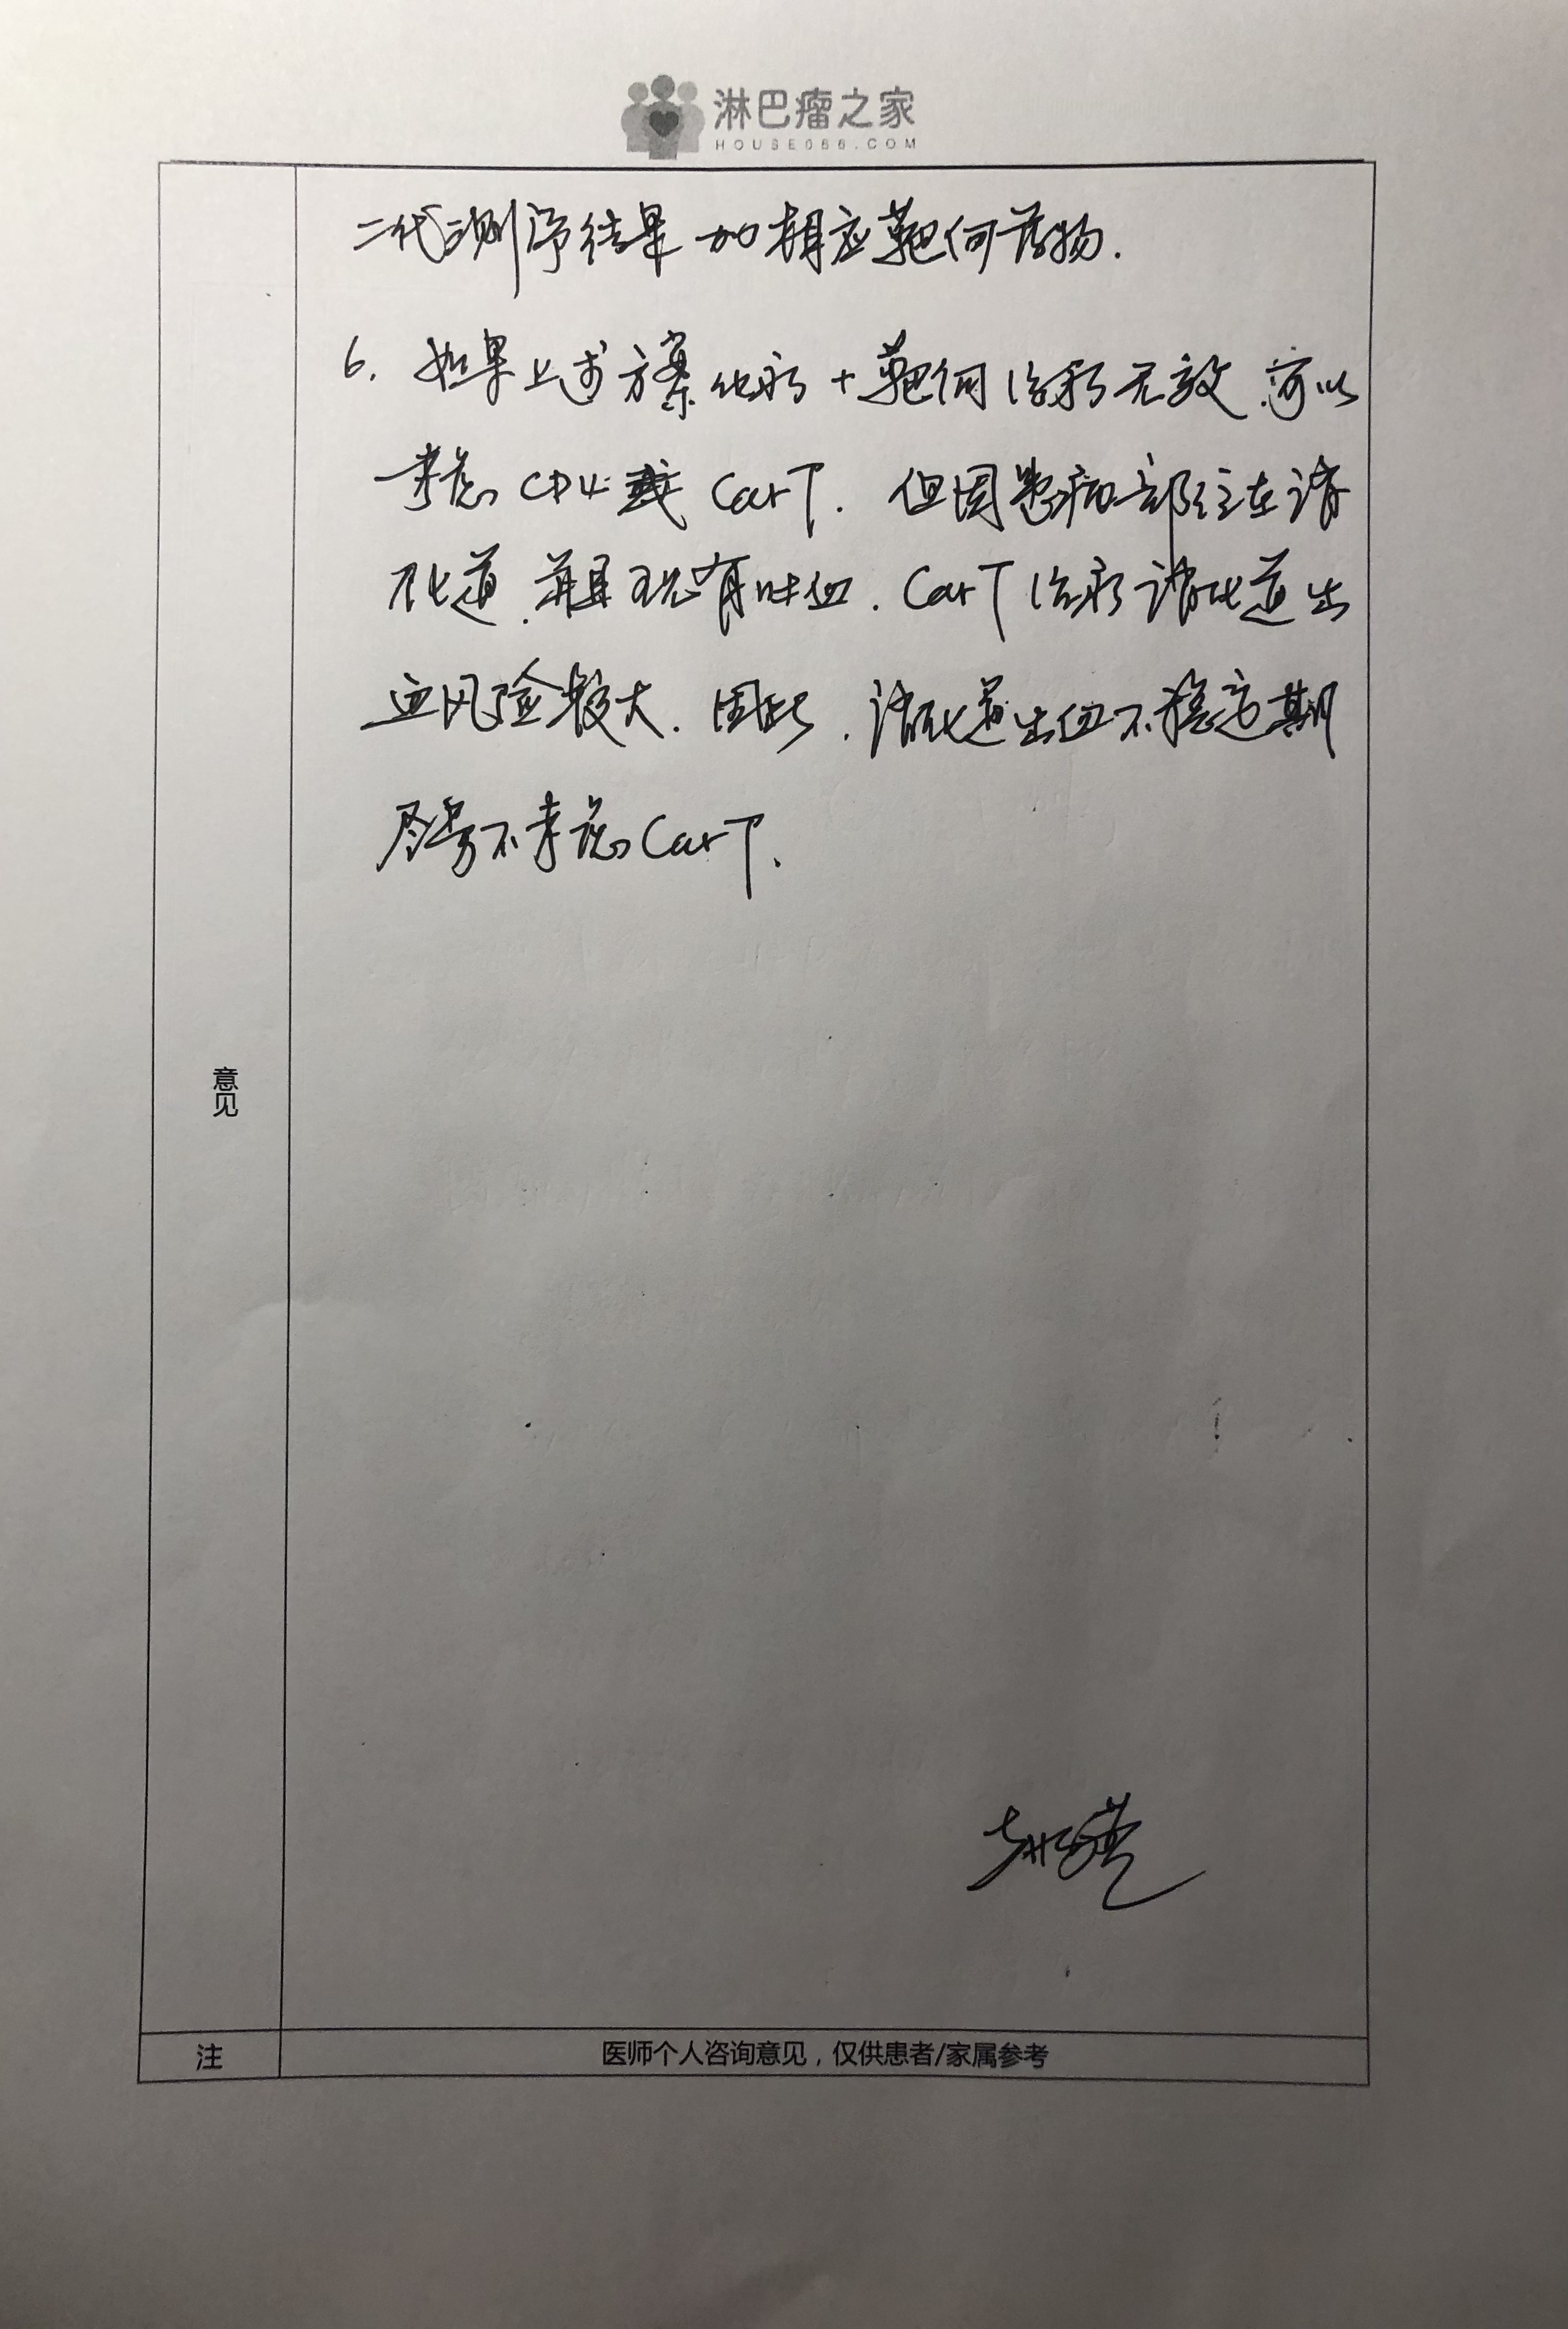 淋巴瘤之家
HOUSE086.COM
二代测序结果 加相应靶向药物.
6. 如果上述方案化疗+靶向治疗无效.可以
考虑 CD4 或 CarT. 但因患病部位在消
化道.并且现有呕血. CarT治疗消化道出
血风险较大. 因此.消化道出血不稳定期
尽量不考虑CarT.
意见
注
医师个人咨询意见，仅供患者/家属参考